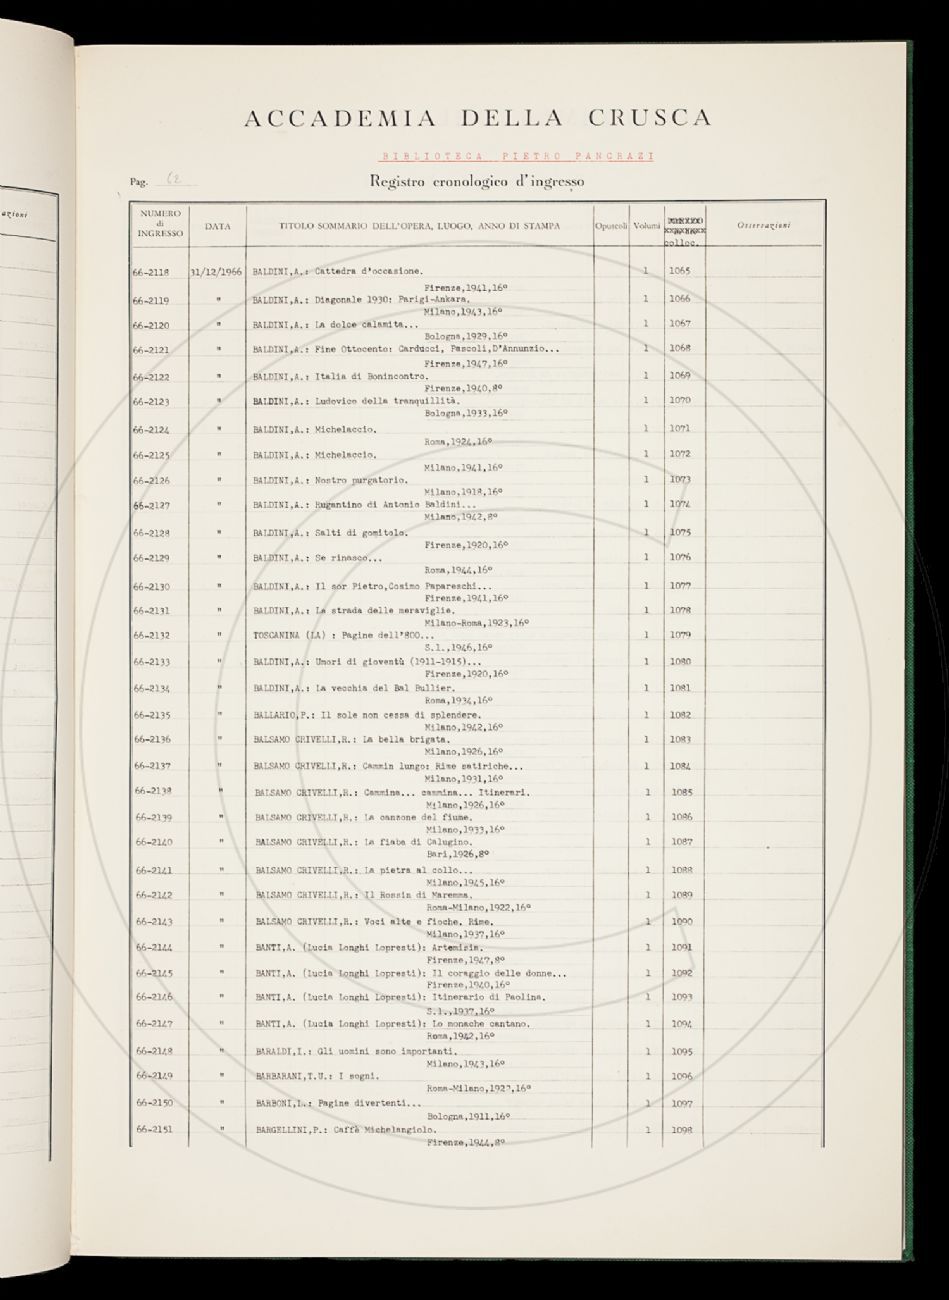 azioni
ACCADEMIA DELLA CRUSCA
BIBLIOTECA PIETRO PANCRAZI
Pag. 62 Registro cronologico d'ingresso
NUMERO di INGRESSO DATA TITOLO SOMMARIO DELL'OPERA, LUOGO, ANNO DI STAMPA Opuscoli Volumi colloc. Osservazioni
66-2118 31/12/1966 BALDINI,A.: Cattedra d'occasione. 1 1065
Firenze,1941,16º
66-2119 " BALDINI,A.: Diagonale 1930: Parigi-Ankara. 1 1066
Milano,1943,16º
66-2120 " BALDINI,A.: La dolce calamita... 1 1067
Bologna,1929,16º
66-2121 " BALDINI,A.: Fine Ottocento: Carducci, Pascoli,D'Annunzio... 1 1068
Firenze,1947,16º
66-2122 " BALDINI,A.: Italia di Bonincontro. 1 1069
Firenze,1940,8º
66-2123 " BALDINI,A.: Ludovico della tranquillità. 1 1070
Bologna,1933,16º
66-2124 " BALDINI,A.: Michelaccio. 1 1071
Roma,1924,16º
66-2125 " BALDINI,A.: Michelaccio. 1 1072
Milano,1941,16º
66-2126 " BALDINI,A.: Nostro purgatorio. 1 1073
Milano,1918,16º
66-2127 " BALDINI,A.: Rugantino di Antonio Baldini... 1 1074
Milano,1942,8º
66-2128 " BALDINI,A.: Salti di gomitolo. 1 1075
Firenze,1920,16º
66-2129 " BALDINI,A.: Se rinasco... 1 1076
Roma,1944,16º
66-2130 " BALDINI,A.: Il sor Pietro,Cosimo Papareschi... 1 1077
Firenze,1941,16º
66-2131 " BALDINI,A.: La strada delle meraviglie. 1 1078
Milano-Roma,1923,16º
66-2132 " TOSCANINA (LA) : Pagine dell'800... 1 1079
S.l.,1946,16º
66-2133 " BALDINI,A.: Umori di gioventù (1911-1915)... 1 1080
Firenze,1920,16º
66-2134 " BALDINI,A.: La vecchia del Bal Bullier. 1 1081
Roma,1934,16º
66-2135 " BALLARIO,P.: Il sole non cessa di splendere. 1 1082
Milano,1942,16º
66-2136 " BALSAMO CRIVELLI,R.: La bella brigata. 1 1083
Milano,1926,16º
66-2137 " BALSAMO CRIVELLI,R.: Cammin lungo: Rime satiriche... 1 1084
Milano,1931,16º
66-2138 " BALSAMO CRIVELLI,R.: Cammina... cammina... Itinerari. 1 1085
Milano,1926,16º
66-2139 " BALSAMO CRIVELLI,R.: La canzone del fiume. 1 1086
Milano,1933,16º
66-2140 " BALSAMO CRIVELLI,R.: La fiaba di Calugino. 1 1087
Bari,1926,8º
66-2141 " BALSAMO CRIVELLI,R.: La pietra al collo... 1 1088
Milano,1945,16º
66-2142 " BALSAMO CRIVELLI,R.: Il Rossin di Maremma. 1 1089
Roma-Milano,1922,16º
66-2143 " BALSAMO CRIVELLI,R.: Voci alte e fioche. Rime. 1 1090
Milano,1937,16º
66-2144 " BANTI,A. (Lucia Longhi Lopresti): Artemisia. 1 1091
Firenze,1947,8º
66-2145 " BANTI,A. (Lucia Longhi Lopresti): Il coraggio delle donne... 1 1092
Firenze,1940,16º
66-2146 " BANTI,A. (Lucia Longhi Lopresti): Itinerario di Paolina. 1 1093
S.l.,1937,16º
66-2147 " BANTI,A. (Lucia Longhi Lopresti): Le monache cantano. 1 1094
Roma,1942,16º
66-2148 " BARALDI,I.: Gli uomini sono importanti. 1 1095
Milano,1943,16º
66-2149 " BARBARANI,T.U.: I sogni. 1 1096
Roma-Milano,
66-2150 " BARBONI,L.: Pagine divertenti... 1 1097
Bologna,1911,16º
66-2151 " BARGELLINI,P.: Caffè Michelangiolo. 1 1098
Firenze,1944,8º